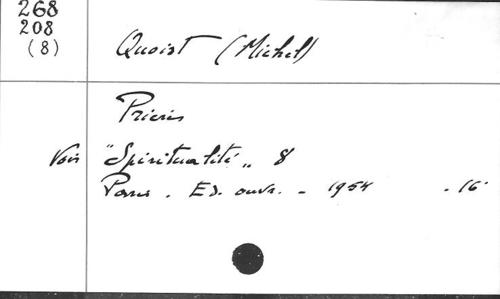 268
208
(8)
Quoist (Michel)
Prières
Voir "Spiritualité" 8
Paris. Ed. ouvr. - 1954 - 16°